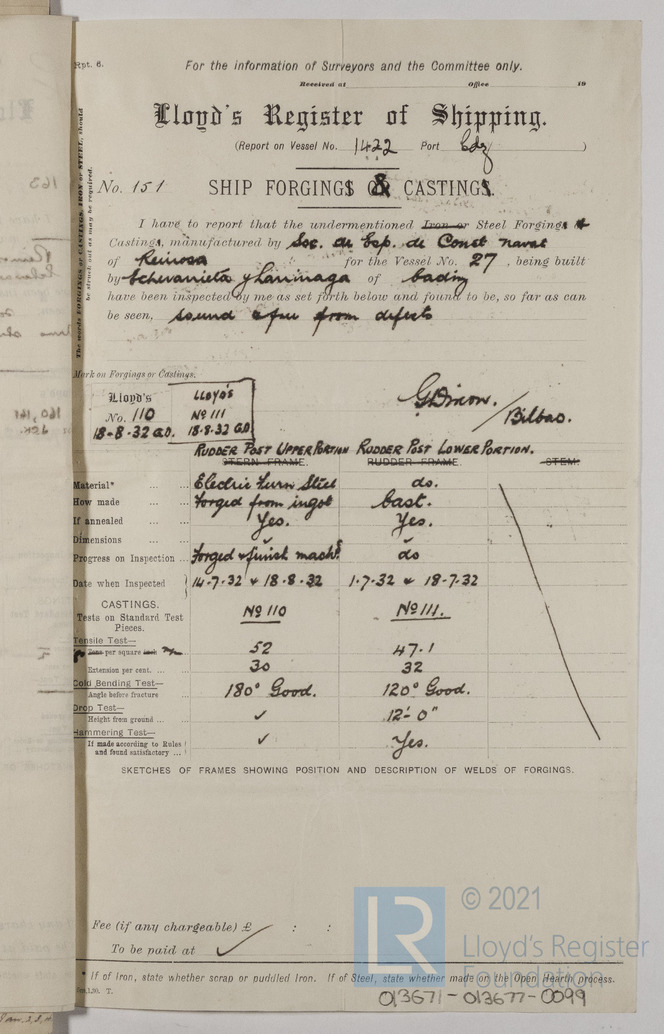 Rpt. 6.
For the information of Surveyors and the Committee only.
Received at Office 19
Lloyd's Register of Shipping.
(Report on Vessel No. 1422 Port Cdz )
No. 151 SHIP FORGINGS & CASTINGS.
The words FORGINGS or CASTINGS, IRON or STEEL, should
be struck out as may be required.
I have to report that the undermentioned Iron or Steel Forgings &
Castings, manufactured by Soc. de Esp. de Const naval
of Reinosa for the Vessel No. 27, being built
by Echevarrieta y Larrinaga of Cadiz
have been inspected by me as set forth below and found to be, so far as can
be seen, sound & free from defects
Mark on Forgings or Castings.
Lloyd's
No. 110
18-8-32 G.D.
LLOYD'S
No 111
18.8.32 G.D
G Dixon. / Bilbao.
RUDDER POST UPPER PORTION RUDDER POST LOWER PORTION.
STERN FRAME. RUDDER FRAME. STEM.
Material* ... ... Electric Furn Steel do.
How made ... ... Forged from ingot Cast.
If annealed ... ... Yes. Yes.
Dimensions ... ... ✓ ✓
Progress on Inspection ... Forged & finish machd. do
Date when Inspected 14-7-32 & 18-8-32 1-7-32 & 18-7-32
CASTINGS.
Tests on Standard Test
Pieces.
No 110 No 111.
Tensile Test—
Tons per square inch 52 47.1
Extension per cent. ... 30 32
Cold Bending Test—
Angle before fracture 180° Good. 120° Good.
Drop Test—
Height from ground ... ✓ 12'-0"
Hammering Test—
If made according to Rules
and found satisfactory ... ✓ Yes.
SKETCHES OF FRAMES SHOWING POSITION AND DESCRIPTION OF WELDS OF FORGINGS.
Fee (if any chargeable) £ : :
To be paid at ✓
* If of Iron, state whether scrap or puddled Iron. If of Steel, state whether made on the Open Hearth process.
LR
© 2021
Lloyd's Register
Foundation
013671-013677-0099